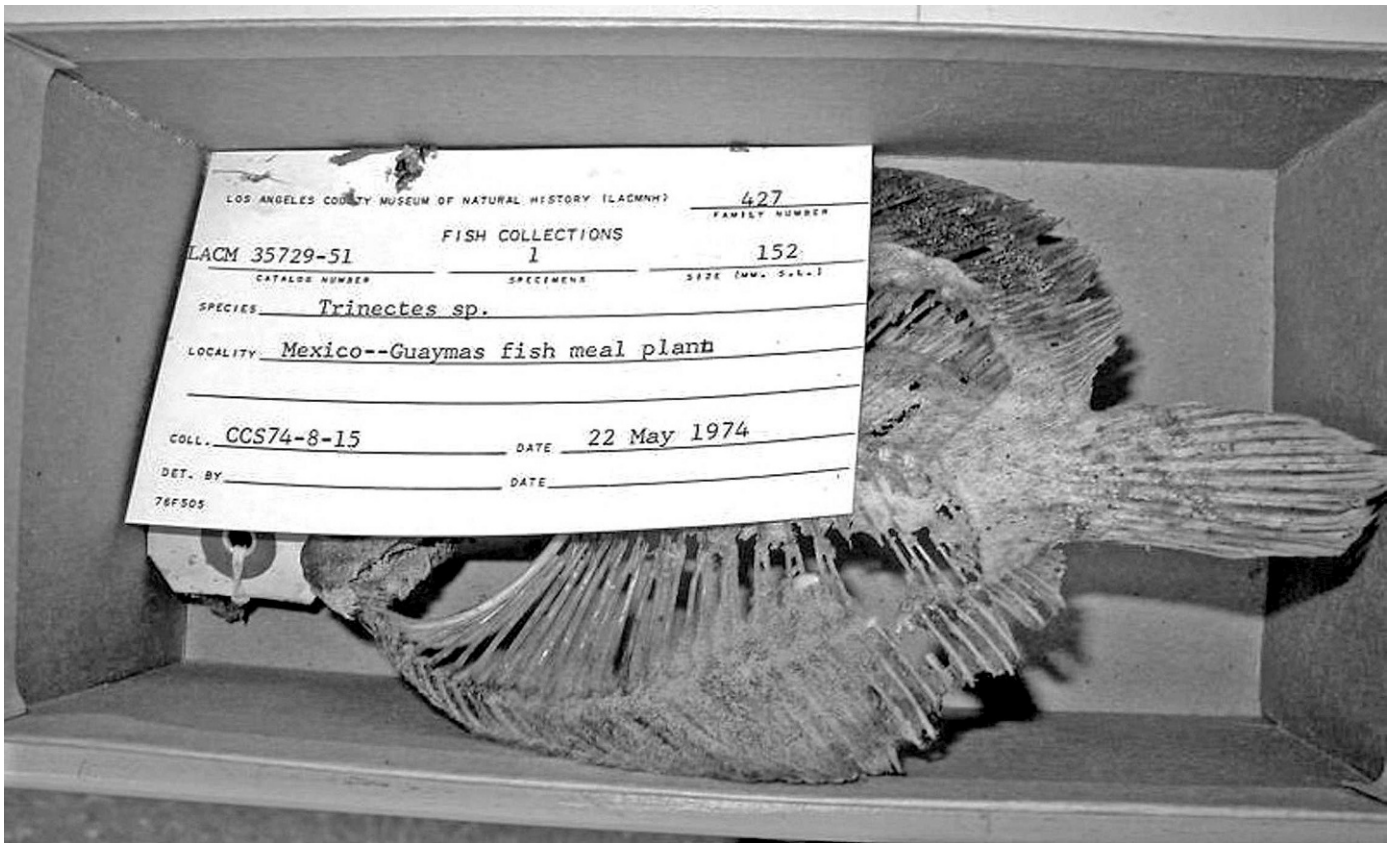 LOS ANGELES COUNTY MUSEUM OF NATURAL HISTORY (LACMNH) 427
FAMILY NUMBER
FISH COLLECTIONS
LACM 35729-51 1 152
CATALOG NUMBER SPECIMENS SIZE (MM. S.L.)
SPECIES Trinectes sp.
LOCALITY Mexico--Guaymas fish meal plant
COLL. CCS74-8-15 DATE 22 May 1974
DET. BY DATE
76F505